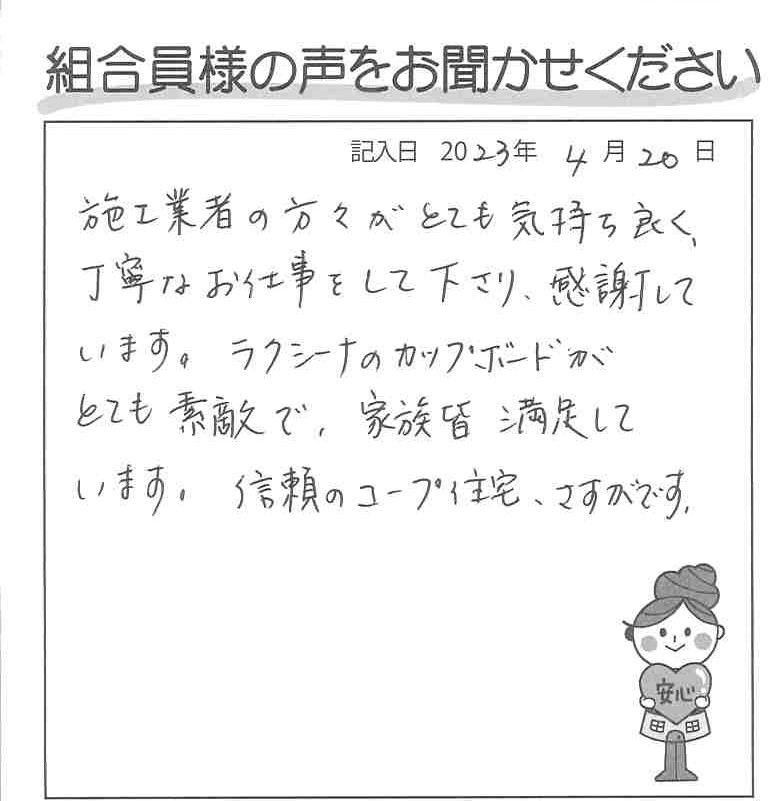 組合員様の声をお聞かせください
記入日 2023年 4月20日
施工業者の方々がとても気持ち良く、
丁寧なお仕事をして下さり、感謝して
います。ラクシーナのカップボードが
とても素敵で、家族皆満足して
います。信頼のコープ住宅、さすがです。
安心